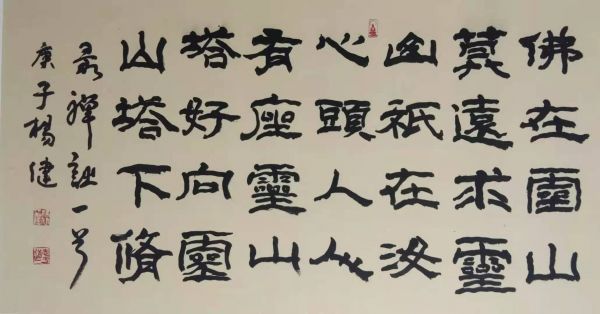 佛在靈山
莫遠求靈
山祇在汝
心頭人人
有座靈山
塔好向靈
山塔下脩
录禪一首
庚子楊健